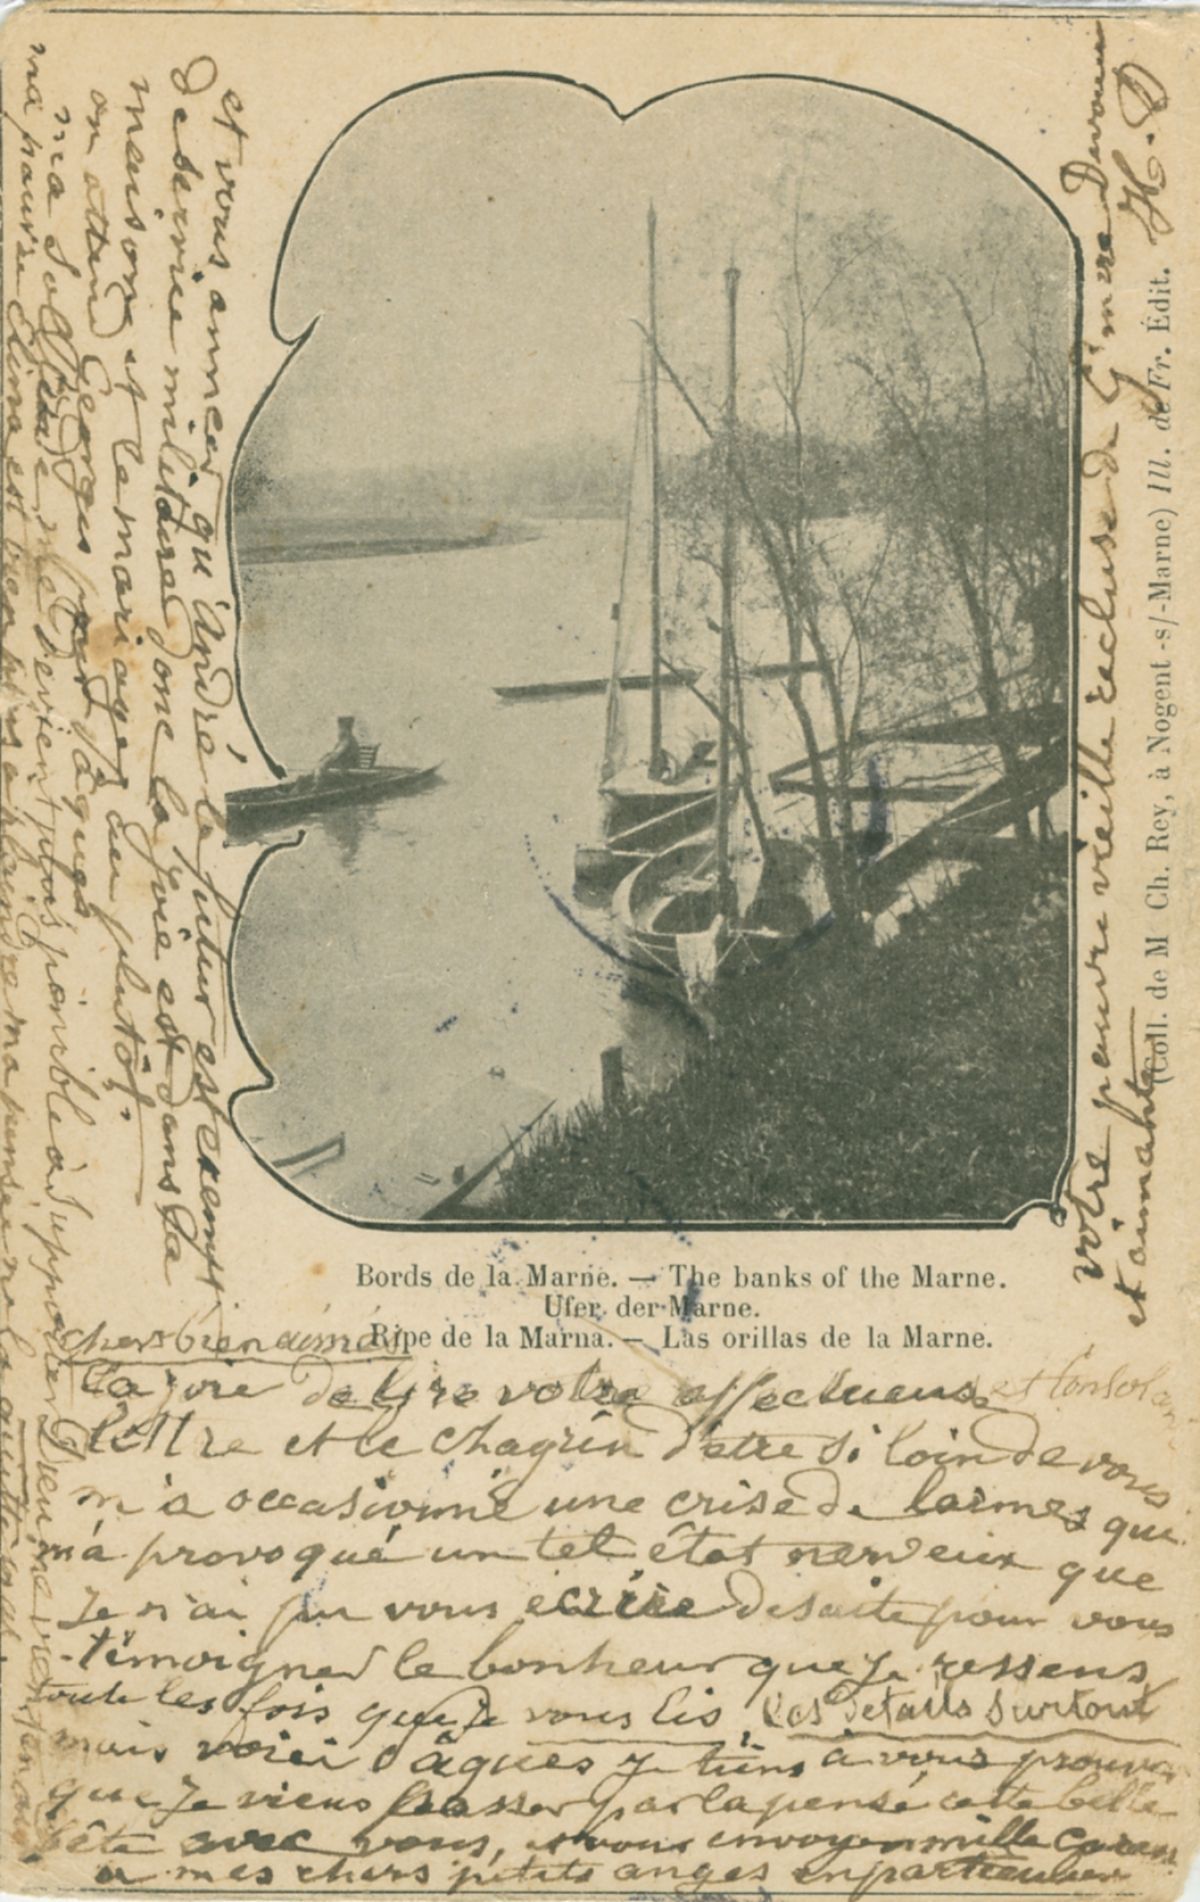 Bords de la Marne. — The banks of the Marne.
Ufer der Marne.
Ripe de la Marna. — Las orillas de la Marne.
(Coll. de M Ch. Rey, à Nogent-s/-Marne) Ill. de Fr. Édit.
chers bien aimés
La joie de lire votre affectueuse et
lettre et le chagrin d'etre si loin de vous
m'a occasionné une crise de larmes qui
m'á provoqué un tel état nerveux que
Je n'ai pu vous écrire desuite pour vous
témoigner le bonheur que Je ressens
toute les fois que Je vous lis, les détails surtout
mais voici Pâques Je tiens à vous prouver
que Je viens passer par la pensé cette belle
fête avec vous, et vous envoyer mille
a mes chers petits anges en particulier
et vous annoncer qu'André le futur est exempt
de service militaire donc la joie est dans la
maison et le mariage au plutôt.
on attend Georges pour Pâques
ma Solitude me devient plus pénible à supporter Dieu me
ma pauvre est bien plus a plaindre ma pensée ne la quitte pas
votre pauvre vieille recluse de G'mère Devouée
et aimante
H. D